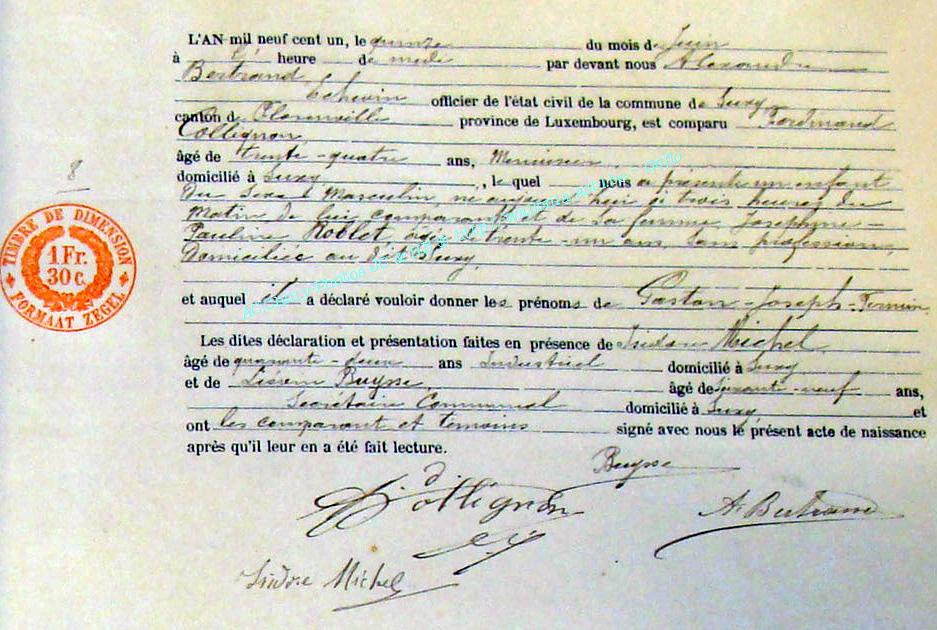 L'AN mil neuf cent un, le quinze du mois de Juin
à heure de par devant nous Alexandre
Bertrand
Echevin officier de l'état civil de la commune de Suxy
canton de province de Luxembourg, est comparu Ferdinand
Collignon
âgé de trente-quatre ans, Menuisier,
domicilié à Suxy, lequel nous a présenté un enfant
Du Sexe Masculin, né aujourd'hui à trois heures du
Matin de lui comparant et de Sa femme Joséphine-
Pauline Roblet, âgée de trente-un ans, Sans profession,
Domiciliée au dit Suxy,
8
TIMBRE DE DIMENSION
1 Fr.
30 c.
FORMAAT ZEGEL
et auquel il a déclaré vouloir donner les prénoms de Gaston-Joseph-
Les dites déclaration et présentation faites en présence de Isidore Michel,
âgé de quarante-deux ans Industriel domicilié à Suxy
et de Buysse, âgé de soixante-neuf ans,
Secrétaire Communal domicilié à Suxy, et
ont les comparant et témoins signé avec nous le présent acte de naissance
après qu'il leur en a été fait lecture.
Buysse
Collignon
A. Bertrand
Isidore Michel